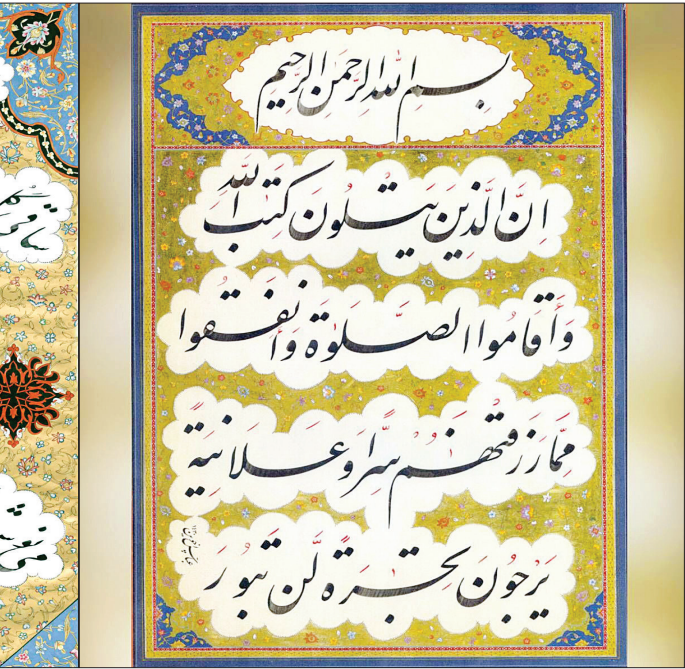 بسم الله الرحمن الرحیم
اِنَّ الَّذینَ یَتلُونَ کِتٰبَ اللهِ
وَأَقَامُوا الصَّلَوٰةَ وَأَنفَقُوا
مِمَّا رَزَقنٰهُم سِرًّا وَعَلَانِیَةً
یَرجُونَ تِجٰرَةً لَن تَبُورَ